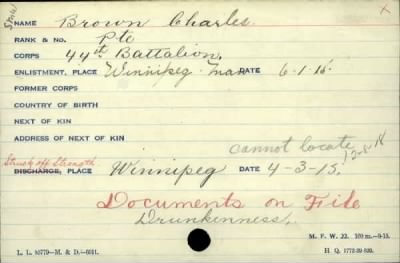 NAME Brown Charles. x
RANK & No. Pte
CORPS 44th Battalion.
ENLISTMENT, PLACE Winnipeg Man DATE 6-1-15.
FORMER CORPS
COUNTRY OF BIRTH
NEXT OF KIN
ADDRESS OF NEXT OF KIN
cannot locate
Struck off Strength
DISCHARGE, PLACE Winnipeg DATE 4-3-15.
Documents on File
Drunkenness.
M. F. W. 22. 100 m.-9-15.
L. L. 10779-M. & D.-6611. H. Q. 1772-39-839.